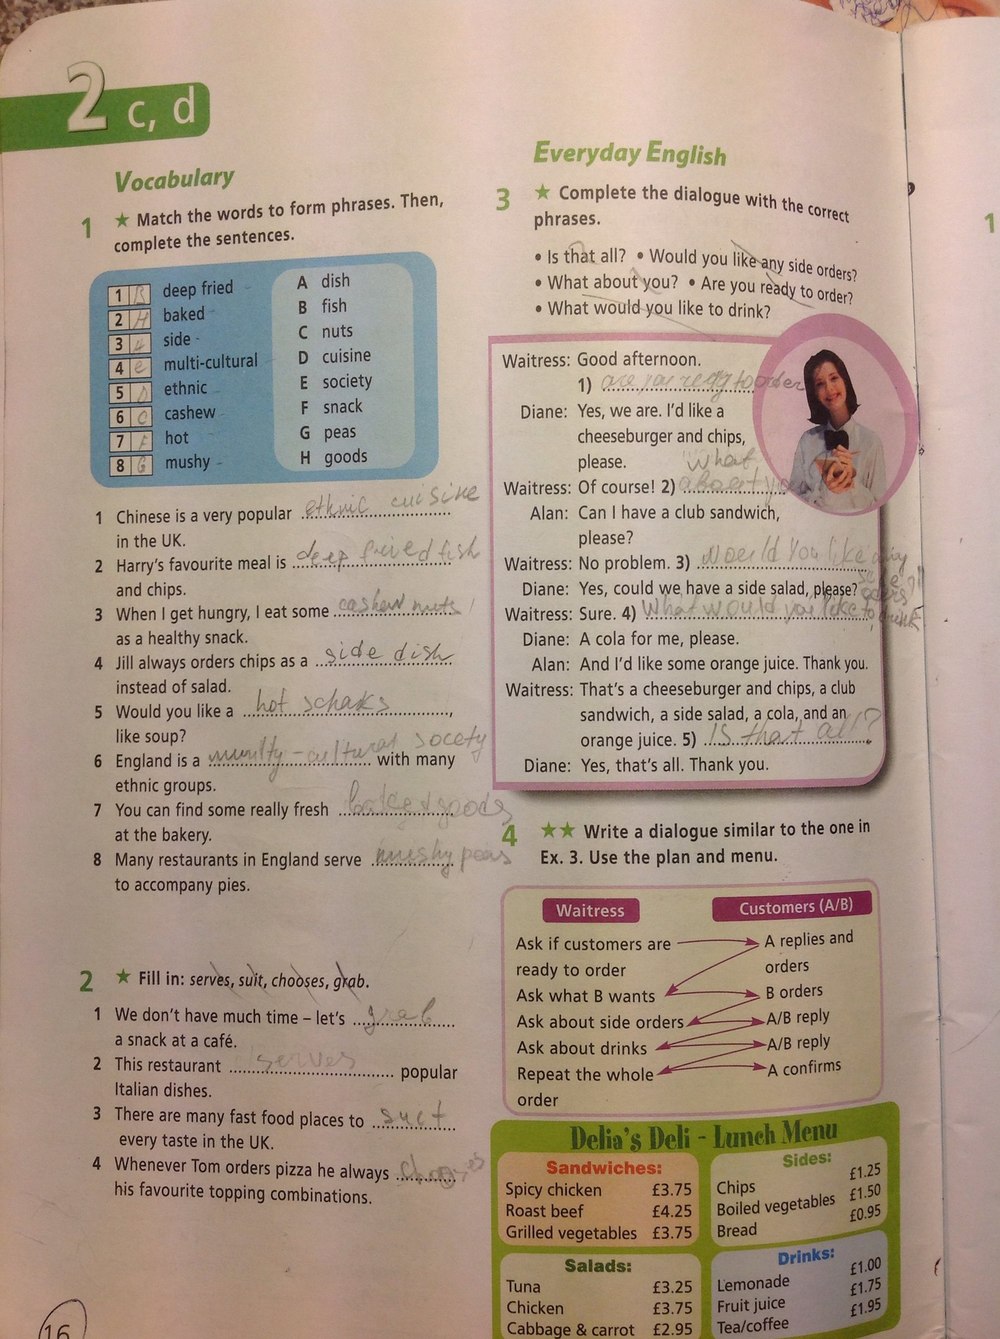 2 c, d
Vocabulary
1 ★ Match the words to form phrases. Then,
complete the sentences.
1 B deep fried
2 H baked
3 side -
4 e multi-cultural
5 D ethnic
6 C cashew
7 F hot
8 G mushy -
A dish
B fish
C nuts
D cuisine
E society
F snack
G peas
H goods
1 Chinese is a very popular ethnic cuisine
in the UK.
2 Harry's favourite meal is deep fried fish
and chips.
3 When I get hungry, I eat some cashew nuts
as a healthy snack.
4 Jill always orders chips as a side dish
instead of salad.
5 Would you like a hot schaks,
like soup?
6 England is a multy-cultural socety with many
ethnic groups.
7 You can find some really fresh baked goods
at the bakery.
8 Many restaurants in England serve mushy peas
to accompany pies.
2 ★ Fill in: serves, suit, chooses, grab.
1 We don't have much time – let's greb
a snack at a café.
2 This restaurant serves popular
Italian dishes.
3 There are many fast food places to suet
every taste in the UK.
4 Whenever Tom orders pizza he always chooses
his favourite topping combinations.
16
Everyday English
3 ★ Complete the dialogue with the correct
phrases.
• Is that all? • Would you like any side orders?
• What about you? • Are you ready to order?
• What would you like to drink?
Waitress: Good afternoon.
1) are you redy to order
Diane: Yes, we are. I'd like a
cheeseburger and chips,
please.
What
Waitress: Of course! 2) about you
Alan: Can I have a club sandwich,
please?
Waitress: No problem. 3) would you like any
side
Diane: Yes, could we have a side salad, please?
Waitress: Sure. 4) What would you like to drink
Diane: A cola for me, please.
Alan: And I'd like some orange juice. Thank you.
Waitress: That's a cheeseburger and chips, a club
sandwich, a side salad, a cola, and an
orange juice. 5) is that all?
Diane: Yes, that's all. Thank you.
4 ★★ Write a dialogue similar to the one in
Ex. 3. Use the plan and menu.
Waitress
Customers (A/B)
Ask if customers are
ready to order
A replies and
orders
Ask what B wants
B orders
Ask about side orders
A/B reply
Ask about drinks
A/B reply
Repeat the whole
order
A confirms
Delia's Deli - Lunch Menu
Sandwiches:
Spicy chicken £3.75
Roast beef £4.25
Grilled vegetables £3.75
Sides:
Chips £1.25
Boiled vegetables £1.50
Bread £0.95
Salads:
Tuna £3.25
Chicken £3.75
Cabbage & carrot £2.95
Drinks:
Lemonade £1.00
Fruit juice £1.75
Tea/coffee £1.95
1